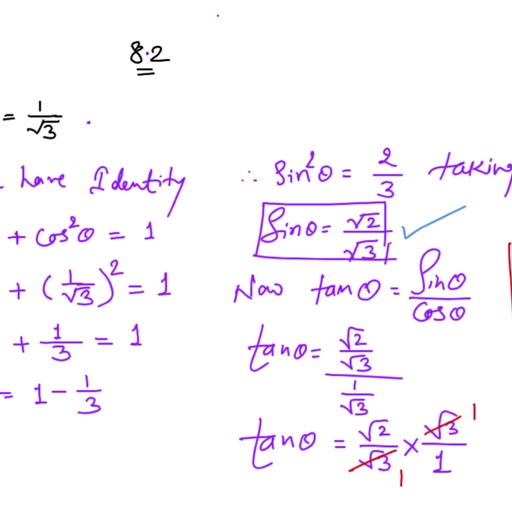 8.2
= 1/√3 .
have Identity
+ cos²θ = 1
+ (1/√3)² = 1
+ 1/3 = 1
= 1 - 1/3
∴ Sin²θ = 2/3 taking
Sinθ = √2/√3 ✓
Now tanθ = Sinθ/cosθ
tanθ = (√2/√3)/(1/√3)
tanθ = √2/√3 1 × √3/1 1